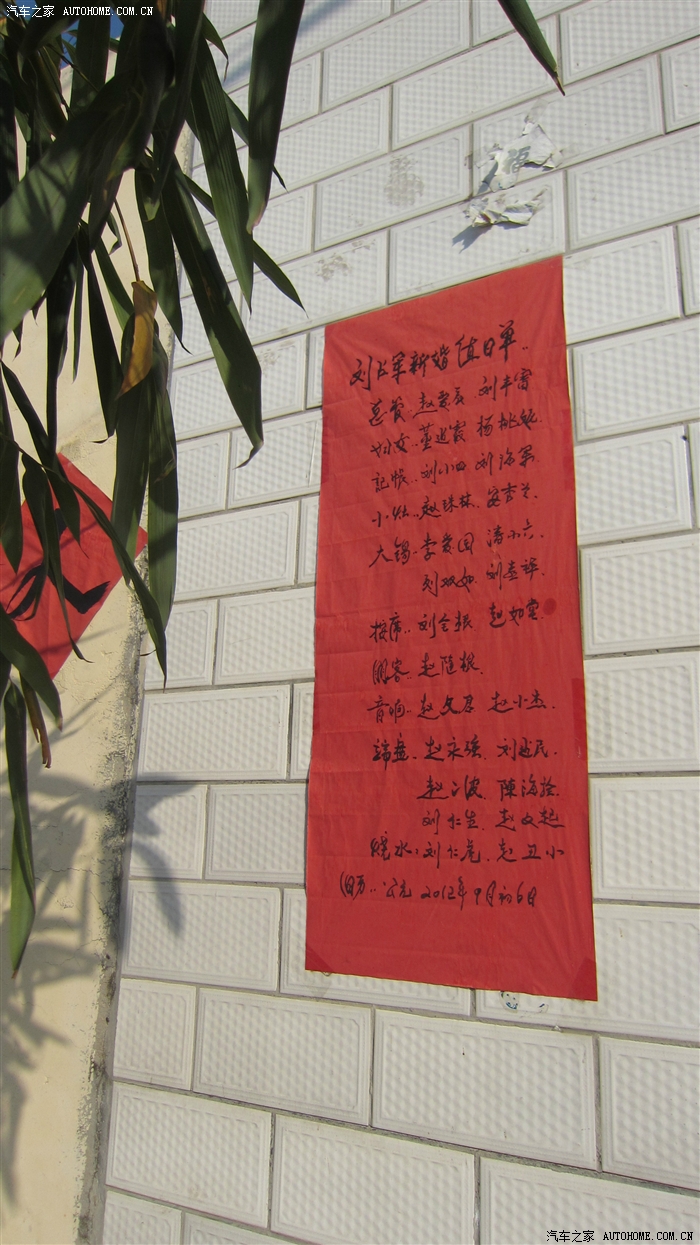 汽车之家 AUTOHOME.COM.CN
福
刘 军新婚值日单..
总管.赵 刘丰雷
董 霞 杨桃敏
記帐..刘小四 刘海军
小灶..赵珠林.安吉兰.
大锅..李爱国 涛小六.
刘双如.刘 祥.
按席..刘全振 赵如堂.
赵随根.
音响..赵文启 赵小杰.
端盘..赵永强.刘 民.
赵 波 陳海拴
刘仁生.赵文起
烧水:刘仁虎.赵卫小
公元2012年9月初6日
汽车之家 AUTOHOME.COM.CN